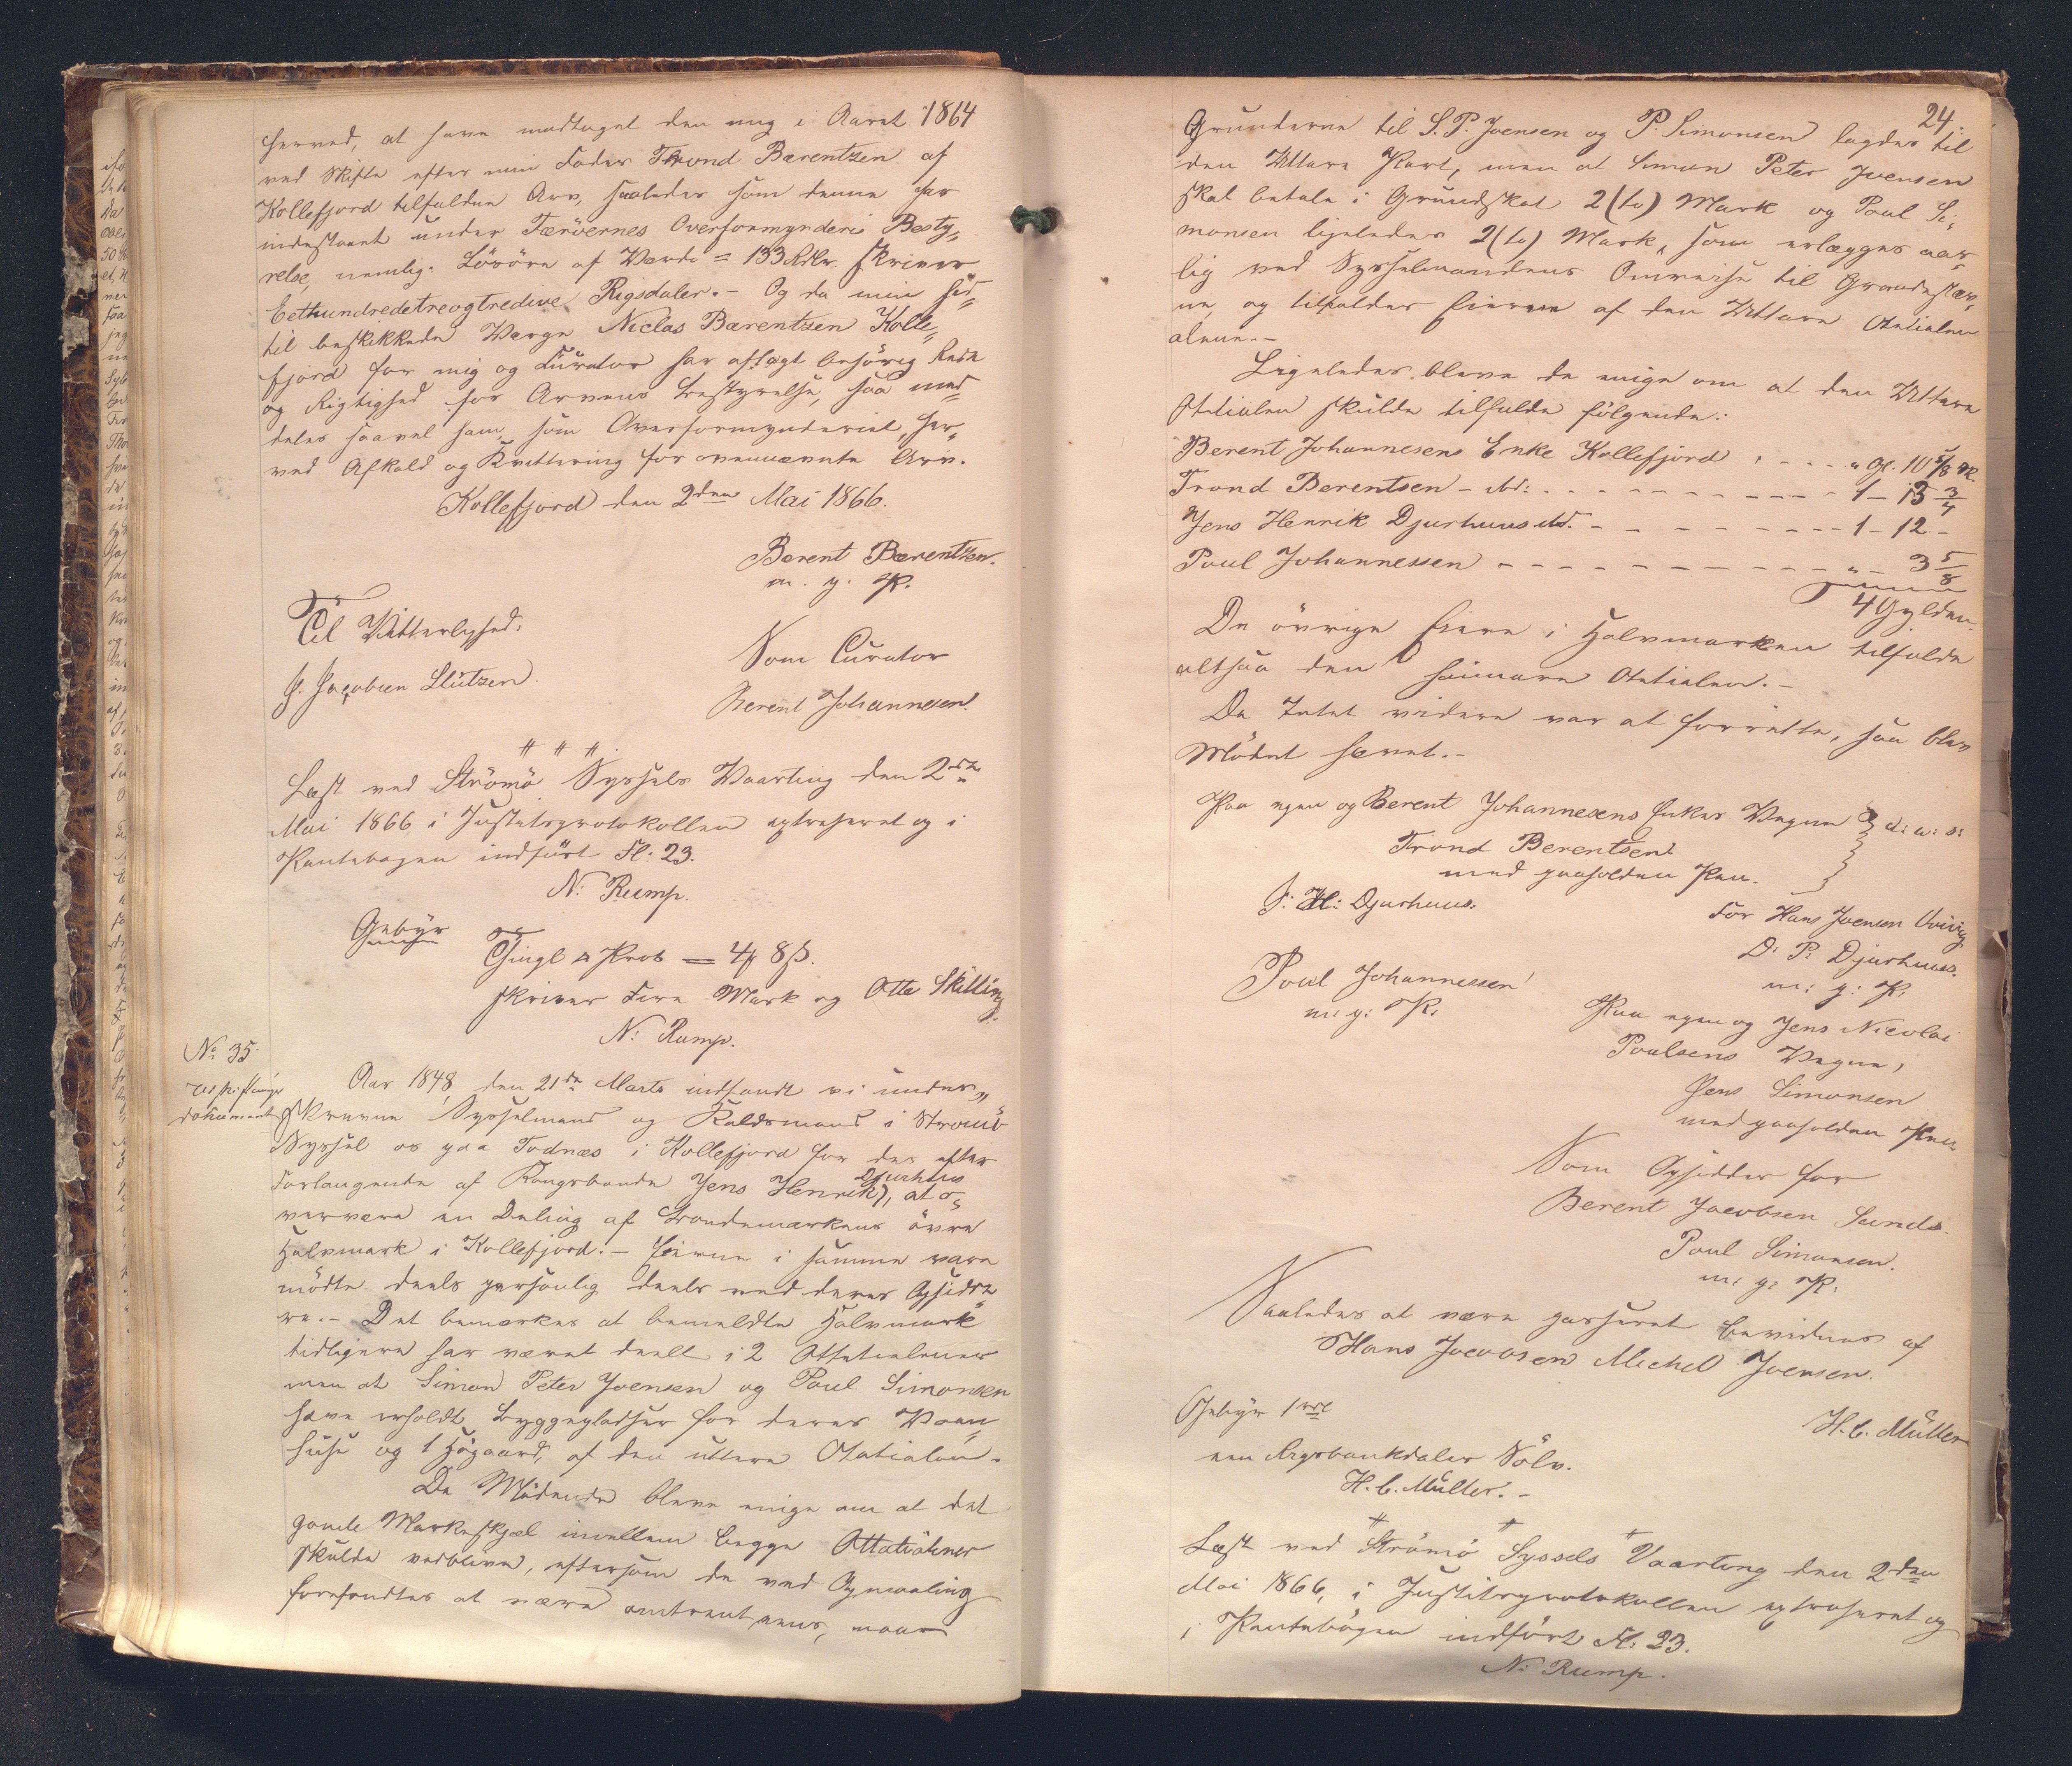 herved, at have modtaget den mig i Aaret 1864
ved Skifte efter min Fader Thrond Bærentzen af
Kollefjord tilfaldne Arv, saaledes som denne har
indestaaet under Færöernes Overformynderis Besty„
relse, nemlig: Lösöre af Værdi = 133 Rdlr. skriver
Eethundredetreogtredive Rigsdaler. – Og da min her„
til beskikkede Værge Niclas Bærentzen Kolle„
fjord for mig og Curator har aflagt behörig Rede
og Rigtighed for Arvens Bestyrelse, saa med„
deles saavel ham, som Overformynderiet, her„
ved Afkald og Kvittering for ovennævnte Arv.
Kollefjord den 2den Mai 1866.
Berent Bærentzen.
m. p. P.
Til Vitterlighed:
J. Jacobsen Lützen.
Som Curator
Berent Johannesen.
# # #
Læst ved Strömö Syssels Vaarting den 2de
Mai 1866, i Justitsprotokollen extraheret og i
Pantebogen indfört Fl: 23.
N: Rump.
Gebyr
Thingl & Prot = 4 ₻ 8 β.
skriver Fire Mark og Otte Skilling.
N: Rump.
No 35.
Udskiftnings
dokument
Aar 1848 den 21de Marts indfandt vi under„
skrevne Sysselmand og Raldsmænd i Strömö
Syssel os paa Todnæs i Kollefjord for der efter
Forlangende af Kongsbonde Jens Henrik Djurhuus), at o„
verværa en Deling af Trondemarkens övre
Halvmark i Kollefjord. – Eierne i samme vare
mödte deels personlig deels ved deres Opsidde
re. – Det bemærkes at bemeldte Halvmark
tidligere har været deelt i 2 Ottetialener
men at Simon Peter Joensen og Poul Simonsen
have erholdt Byggepladser for deres Vaan„
huse og 1 Högaard, af den uttere Otetialen.
De Mödende bleve enige om at det
gamle Markeskjel imellem begge Ottetialner
skulde vedblive, eftersom de ved Opmaaling
forefandtes at være omtrent eens, naar
24.
Grundene til S. P. Joensen og P. Simonsen lagdes til
den Uttere Part, men at Simon Peter Joensen
skal betale i Grundskat 2 (to) Mark og Poul Si„
monsen ligeledes 2 (to) Mark, som erlægges aar„
lig ved Sysselmandens Omreise til Grandestæv„
ne, og tilfalder Eierne af den Uttere Otetialen
alene. –
Ligeledes bleve de enige om at den Uttere
Otetialen skulde tilfalde fölgende:
Berent Johannesens Enke Kollefjord . - - - „ Gl. 10 5/8 Sk.
Trond Berentsen – ibd: - - - - - - - 1 – 13 3/4
Jens Henrik Djurhuus ibd. - - - - - - - 1 – 12 –
Poul Johannessen - - - - - - - - - „ – 3 5/8
4 Gylden.
De övrige Eiere i Halvmarken tilfaldt
altsaa den heimare Otetialen. –
Da Intet videre var at forrette, saa blev
Mödet hævet. –
Paa egen og Berent Johannesens Enkes Vegne
Trond Berentsen
med paaholden Pen.
J: H: Djurhuus.
For Hans Joensen
D: P: Djurhuus.
m: p: P.
Poul Johannessen
m: p: P.
Paa egen og Jens Nicolai
Poulsens Vegne,
Jens Simonsen
med paaholden Pen
Som Opsidder for
Berent Jacobsen Sunds.
Poul Simonsen.
m: p: P.
Saaledes at være passeret bevidnes af
Hans Jacobsen Michel Joensen.
H. C. Müller
Gebyr 1 rd
een Rigsbankdaler Sölv.
H. C. Müller. –
# # #
Læst ved Strömö Syssels Vaarting den 2den
Mai 1866, i Justitsprotokollen extraheret og
i Pantebogen indfört Fl: 23.
N: Rump.